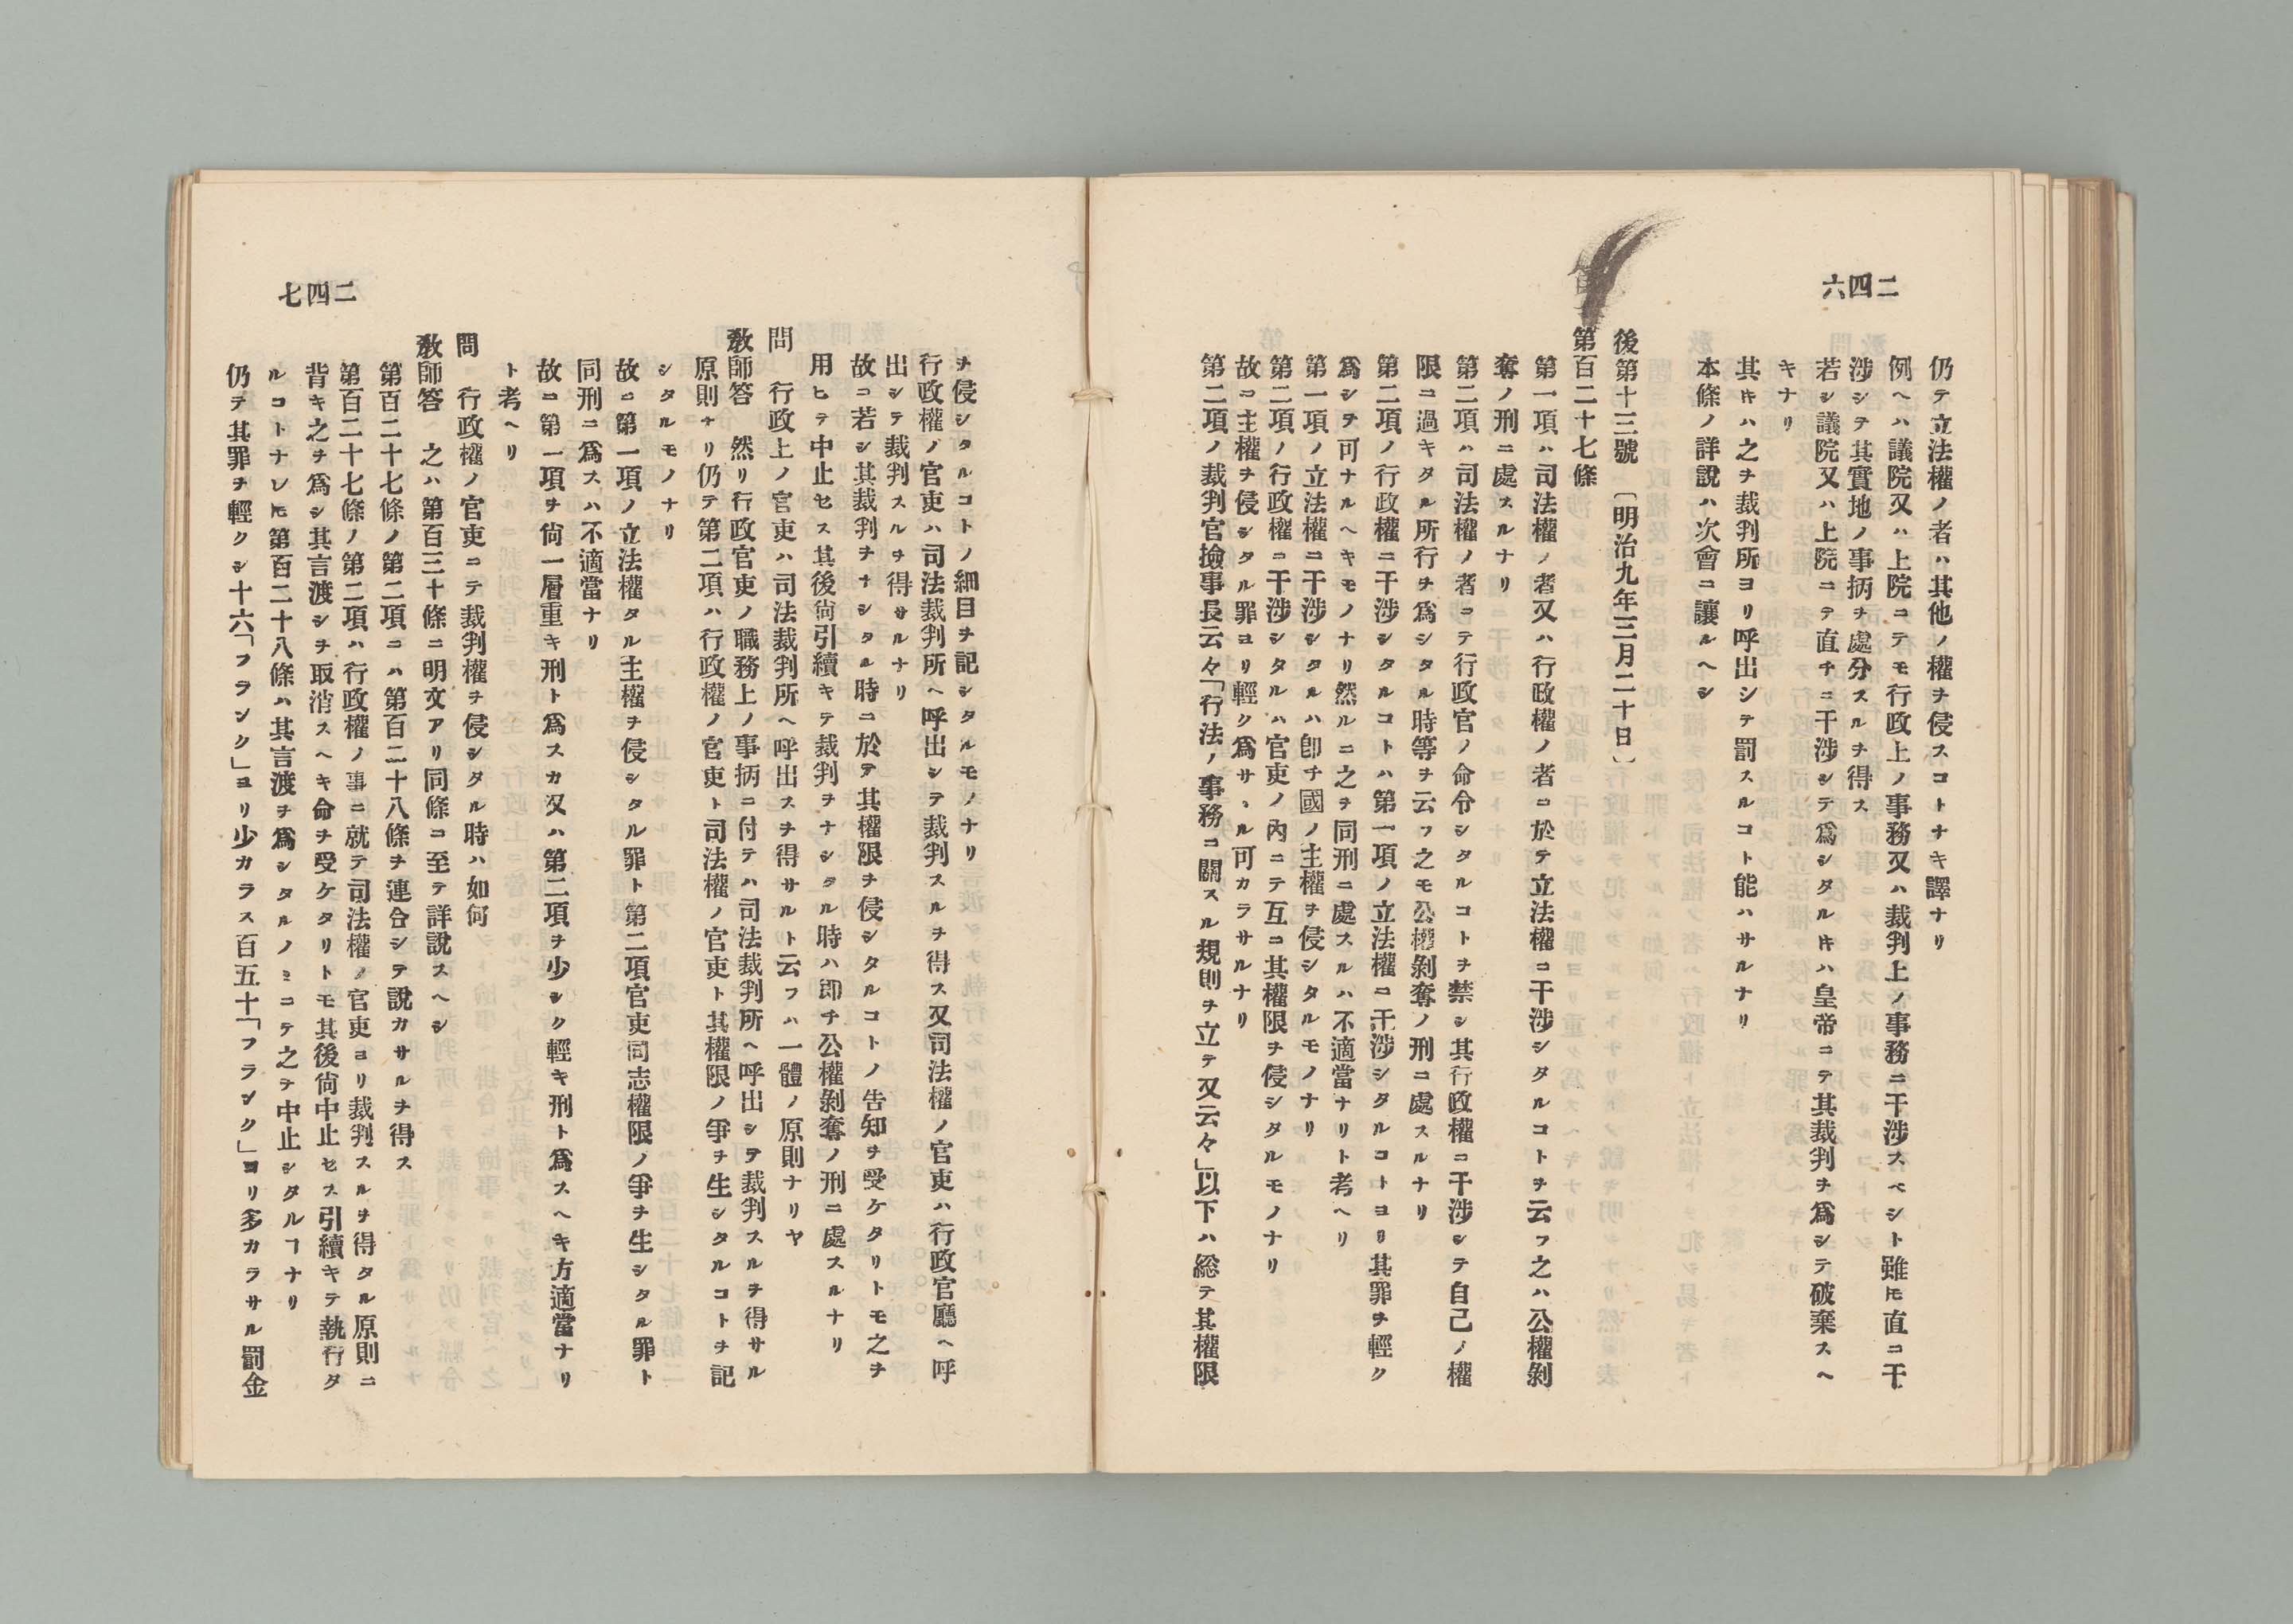 二四六
仍テ立法權ノ者ハ其他ノ權ヲ侵スコトナキ譯ナリ
例ヘハ議院又ハ上院ニテモ行政上ノ事務又ハ裁判上ノ事務ニ干涉スベシト雖𪜈直ニ干
涉シテ其實地ノ事柄ヲ處分スルヲ得ス
若シ議院又ハ上院ニテ直チニ干涉シテ爲シタルキハ皇帝ニテ其裁判ヲ爲シテ破棄スヘ
キナリ
其キハ之ヲ裁判所ヨリ呼出シテ罰スルコト能ハサルナリ
本條ノ詳說ハ次會ニ讓ルヘシ
後第十三號 〔明治九年三月二十日〕
第百二十七條
第一項ハ司法權ノ者又ハ行政權ノ者ニ於テ立法權ニ干涉シタルコトヲ云フ之ハ公權剝
奪ノ刑ニ處スルナリ
第二項ハ司法權ノ者ニテ行政官ノ命令シタルコトヲ禁シ其行政權ニ干涉シテ自己ノ權
限ニ過キタル所行ヲ爲シタル時等ヲ云フ之モ公權剝奪ノ刑ニ處スルナリ
第二項ノ行政權ニ干涉シタルコトハ第一項ノ立法權ニ干涉シタルコトヨリ其罪ヲ輕ク
爲シテ可ナルヘキモノナリ然ルニ之ヲ同刑ニ處スルハ不適當ナリト考ヘリ
第一項ノ立法權ニ干涉シタルハ卽チ國ノ主權ヲ侵シタルモノナリ
第二項ノ行政權ニ干涉シタルハ官吏ノ內ニテ互ニ其權限ヲ侵シタルモノナリ
故ニ主權ヲ侵シタル罪ヨリ輕ク爲サヽル可カラサルナリ
第二項ノ裁判官撿事長云々「行法ノ事務ニ關スル規則ヲ立テ又云々」以下ハ総テ其權限
二四七
ヲ侵シタルコトノ細目ヲ記シタルモノナリ
行政權ノ官吏ハ司法裁判所ヘ呼出シテ裁判スルヲ得ス又司法權ノ官吏ハ行政官廳ヘ呼
出シテ裁判スルヲ得サルナリ
故ニ若シ其裁判ヲナシタル時ニ於テ其權限ヲ侵シタルコトノ告知ヲ受ケタリトモ之ヲ
用ヒテ中止セス其後尙引續キテ裁判ヲナシタル時ハ卽チ公權剝奪ノ刑ニ處スルナリ
問 行政上ノ官吏ハ司法裁判所ヘ呼出スヲ得サルト云フハ一體ノ原則ナリヤ
敎師答 然リ行政官吏ノ職務上ノ事柄ニ付テハ司法裁判所ヘ呼出シテ裁判スルヲ得サル
原則ナリ仍テ第二項ハ行政權ノ官吏ト司法權ノ官吏ト其權限ノ爭ヲ生シタルコトヲ記
シタルモノナリ
故ニ第一項ノ立法權タル主權ヲ侵シタル罪ト第二項官吏同志權限ノ爭ヲ生シタル罪ト
同刑ニ爲スハ不適當ナリ
故ニ第一項ヲ尙一層重キ刑ト爲スカ又ハ第二項ヲ少シク輕キ刑ト爲スヘキ方適當ナリ
ト考ヘリ
問 行政權ノ官吏ニテ裁判權ヲ侵シタル時ハ如何
敎師答 之ハ第百三十條ニ明文アリ同條ニ至テ詳說スヘシ
第百二十七條ノ第二項ニハ第百二十八條ヲ連合シテ說カサルヲ得ス
第百二十七條ノ第二項ハ行政權ノ事ニ就テ司法權ノ官吏ヨリ裁判スルヲ得タル原則ニ
背キ之ヲ爲シ其言渡シヲ取消スヘキ命ヲ受ケタリトモ其後尙中止セス引續キテ執行タ
ルコトナレ𪜈第百二十八條ハ其言渡ヲ爲シタルノミニテ之ヲ中止シタルヿナリ
仍テ其罪ヲ輕クシ十六「フランク」ヨリ少カラス百五十「フランク」ヨリ多カラサル罰金